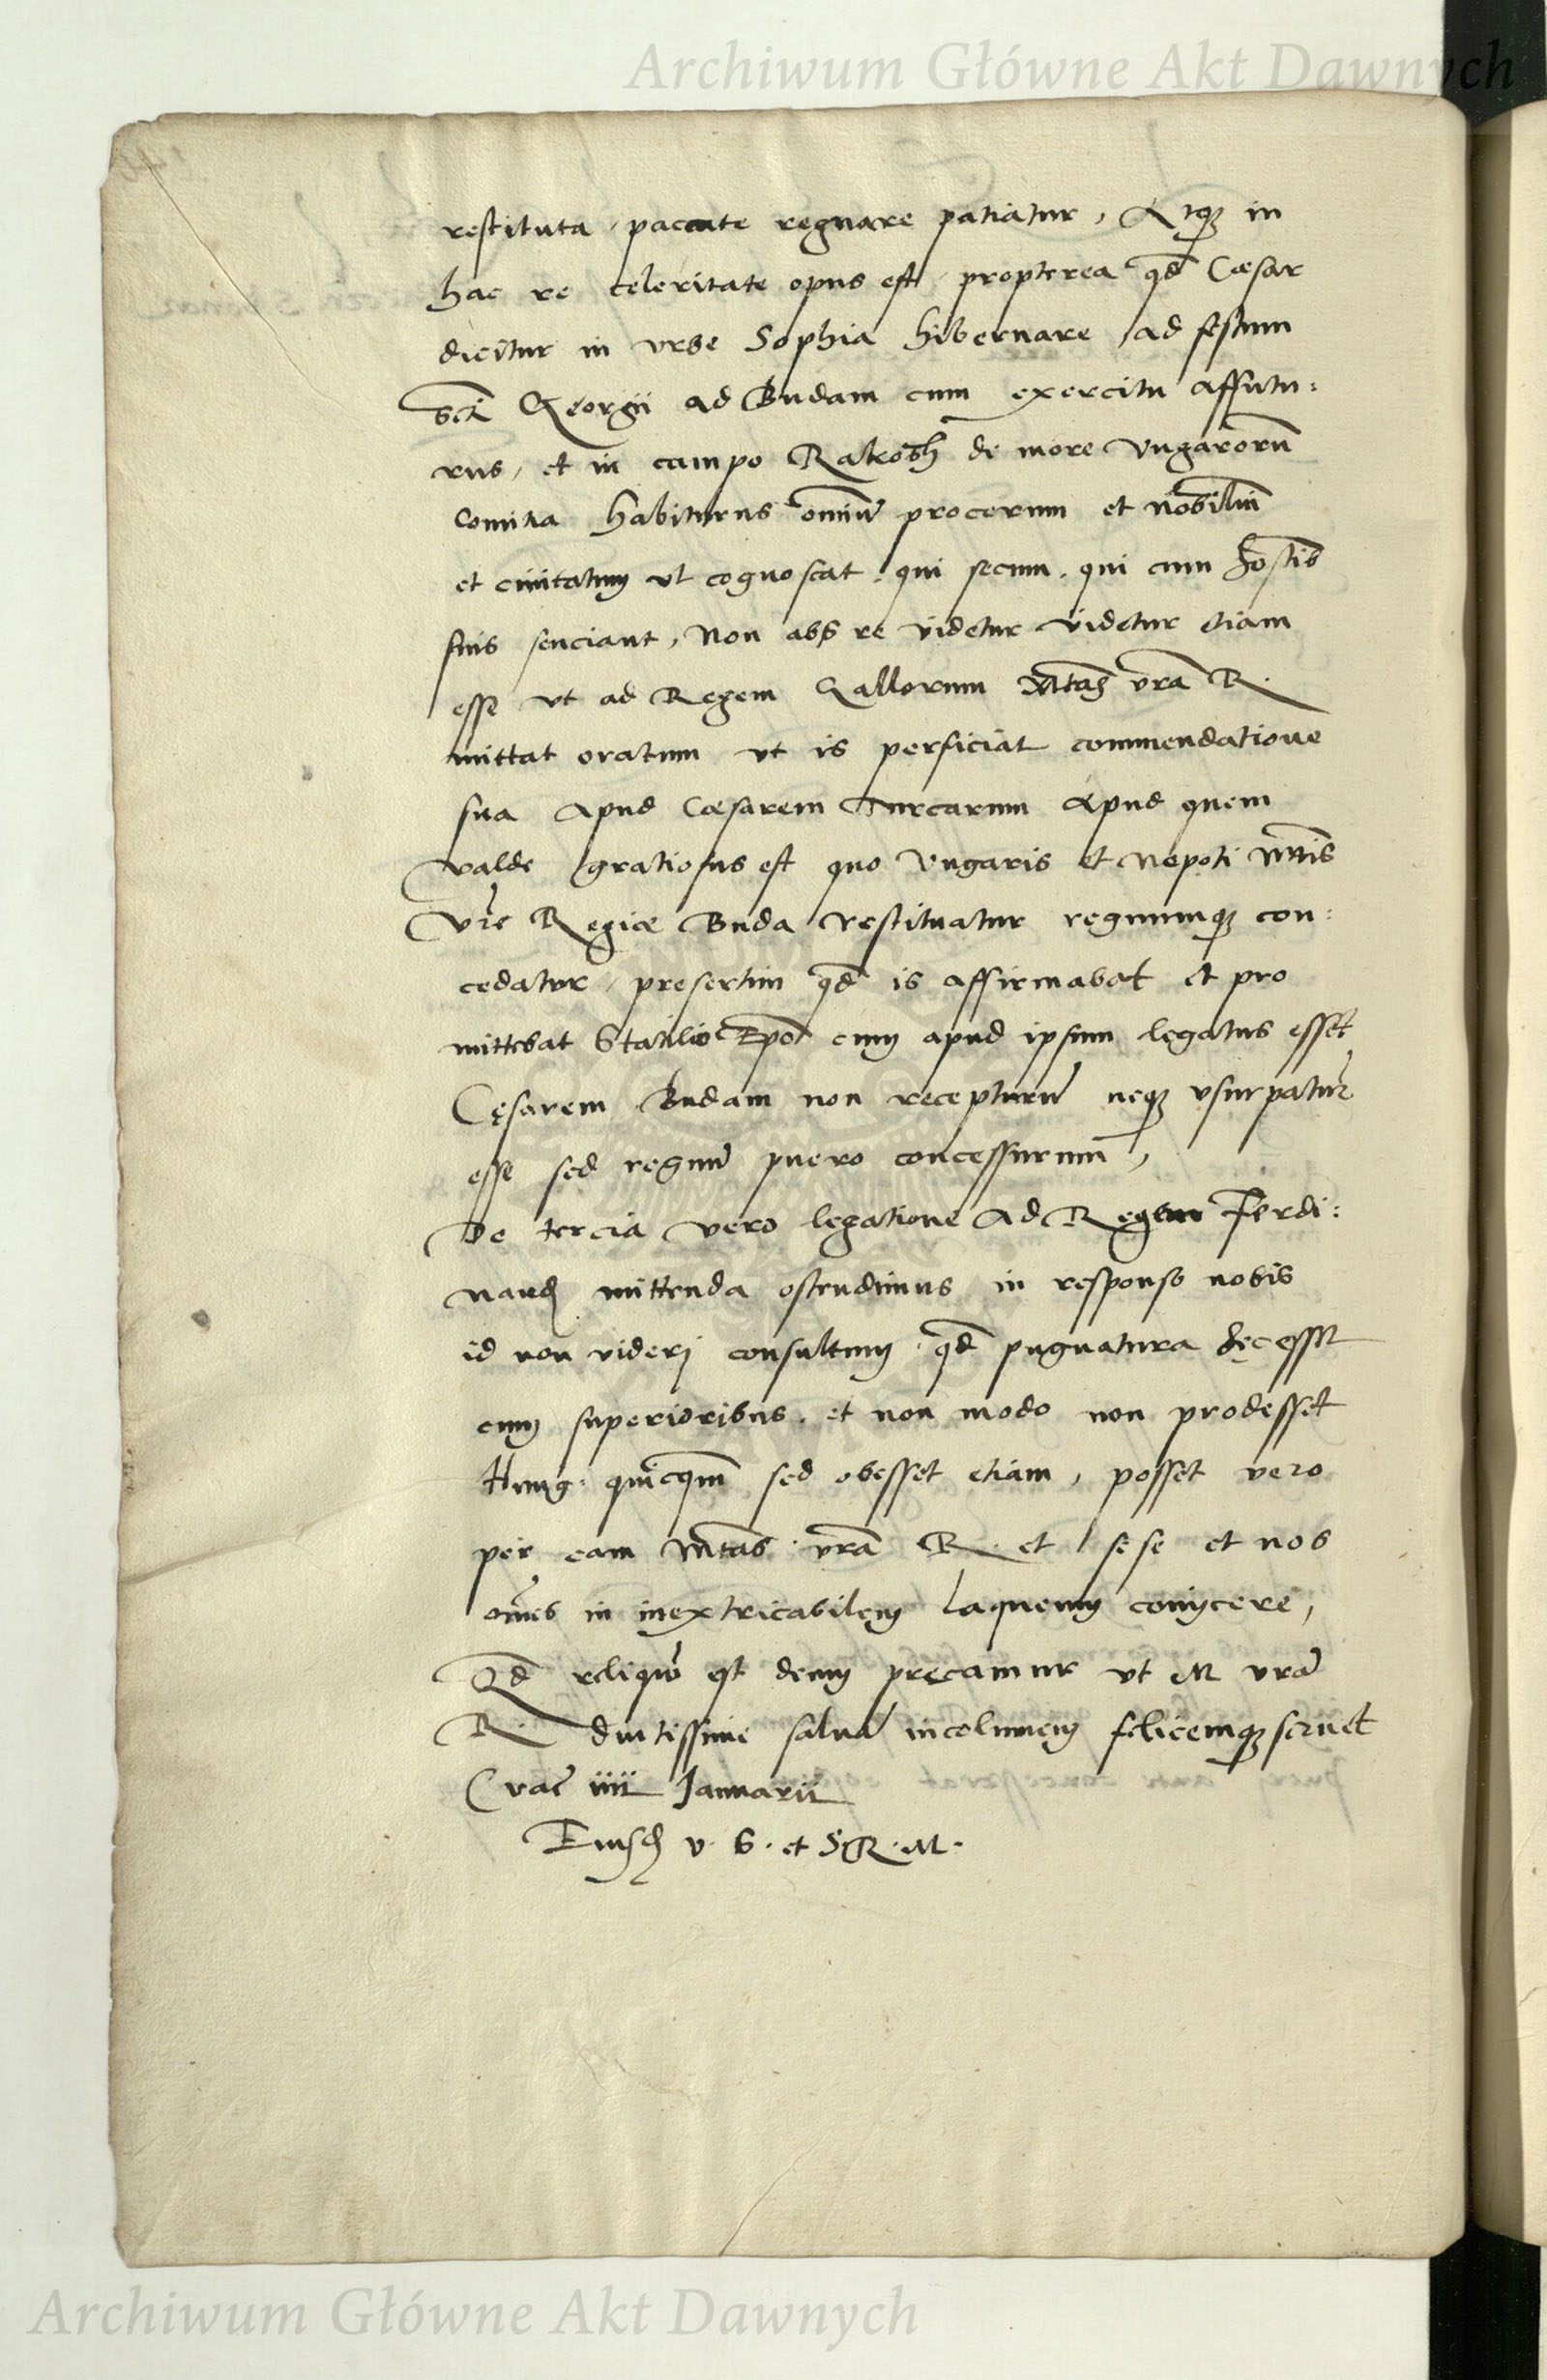 Archiwum Główne Akt Dawnych
restituta, pacate regnare patiatur, Atq3 in
hac re celeritate opus est, propterea qd Cæsar
dicitur in vrbe Sophia hibernare, ad festum
Scti Georgii ad Budam cum exercitu affutu:
rus, et in campo Rakosh de more Vngarorū
comitia habiturus omniū procerum et nobiliū
et ciuitatum vt cognoscat, qui secum, qui cum hostib
suis senciant, Non abs re videtur videtur etiam
esse vt ad Regem Gallorum Mtas vra R.
mittat oratum vt is perficiat commendatione
sua apud Cæsarem Turcarum apud quem
valde gratiosus est quo Vngaris et Nepoti Mtis
Vre Regiæ Buda restituatur regnumq3 con:
cedatur, presertim qd is affirmabat et pro
mittebat Statilio Epo cum apud ipsum legatus esset
Cęsarem Budam non recepturū neq3 vsurpatur
esse sed regnū puero concessurum,
De tercia vero legatione ad Regem Ferdi:
nand mittenda ostendimus in responso nobis
id non videri consultum, qd pugnatura hęc esset
cum superioribus, et non modo non prodesset
Hung: quicqm sed obesset etiam, posset vero
per eam Mtas vra R. et sese et nos
omes in inextricabilem laqueum conijcere,
Qd reliquū est deum pręcamur vt M vrā
R. diutissime saluā incolumem felicemq3 seruet
Crac iiii Januarii
Eiusd v. S. et S R. M.
Archiwum Główne Akt Dawnych